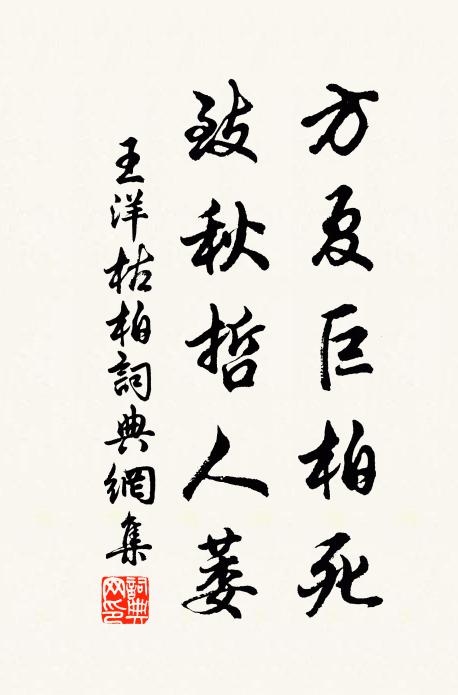 方夏巨柏死
致秋哲人萎
王洋枯柏詞典網集
詞典
网印